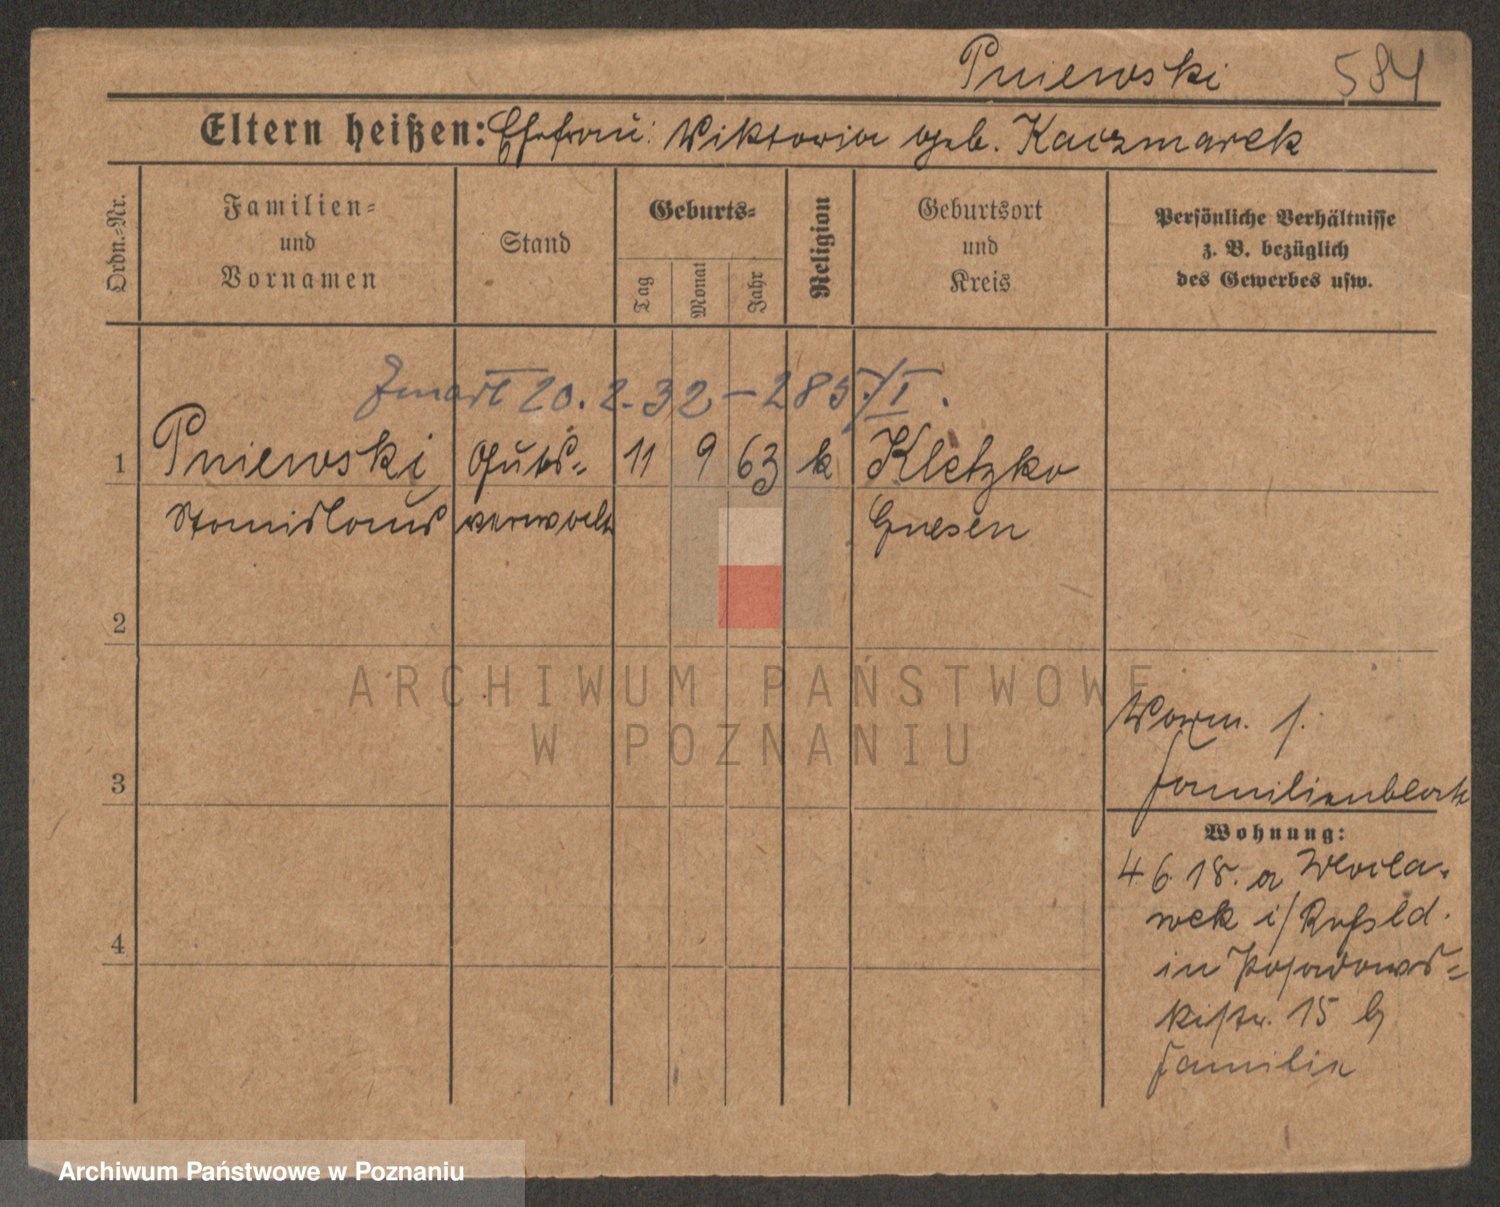 Pniewski 584
Eltern heißen: Ehefrau: Wiktoria geb. Kaczmarek
Ordn.-Nr.
Familien-
und
Vornamen
Stand
Geburts-
Tag
Monat
Jahr
Religion
Geburtsort
und
Kreis
Persönliche Verhältnisse
z. B. bezüglich
des Gewerbes usw.
Zmarł 20.2.32 – 285/I.
1 Pniewski Guts- 11 9 63 k Kletzko
Stanislaus verwalt Gnesen
2
ARCHIWUM PAŃSTWOWE
W POZNANIU
3
Vorm. s.
Familienblatt
Wohnung:
4 6. 18. a Wlocla-
wek i/ Rußld.
in Posadows-
kistr. 15 b
Familie
4
Archiwum Państwowe w Poznaniu